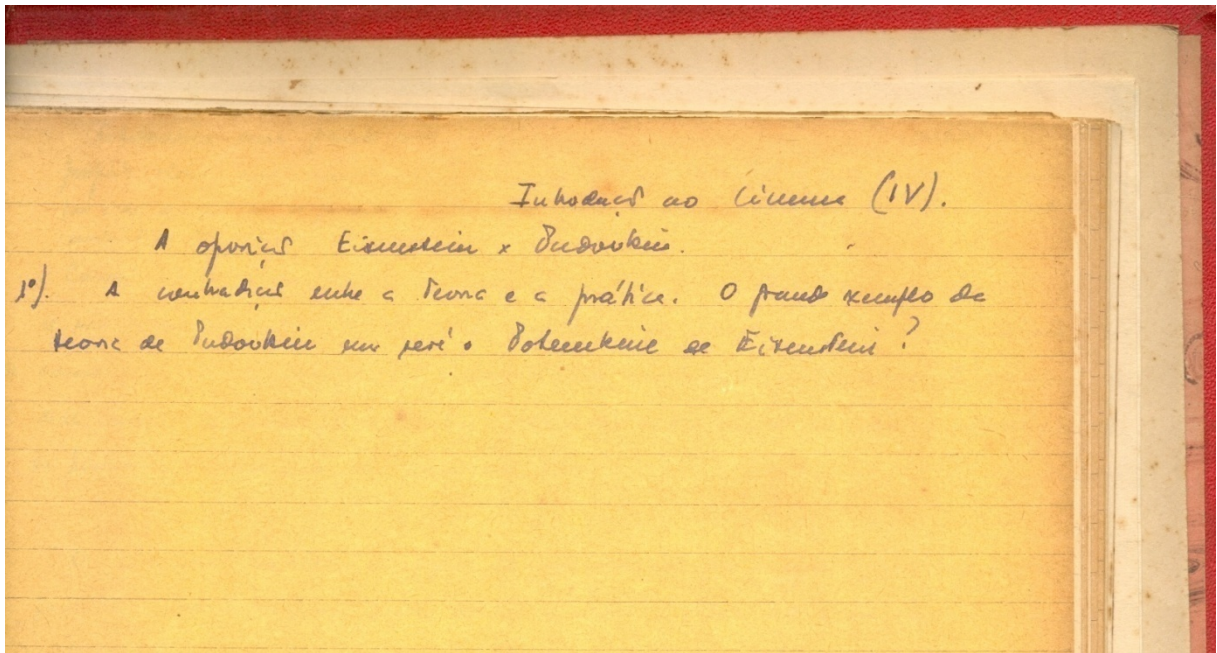 Introdução ao Cinema (IV).
A oposição Eisenstein x Pudovkin.
1º). A contradição entre a teoria e a prática. O grande exemplo da
teoria de Pudovkin não será o Potemkine de Eisenstein?